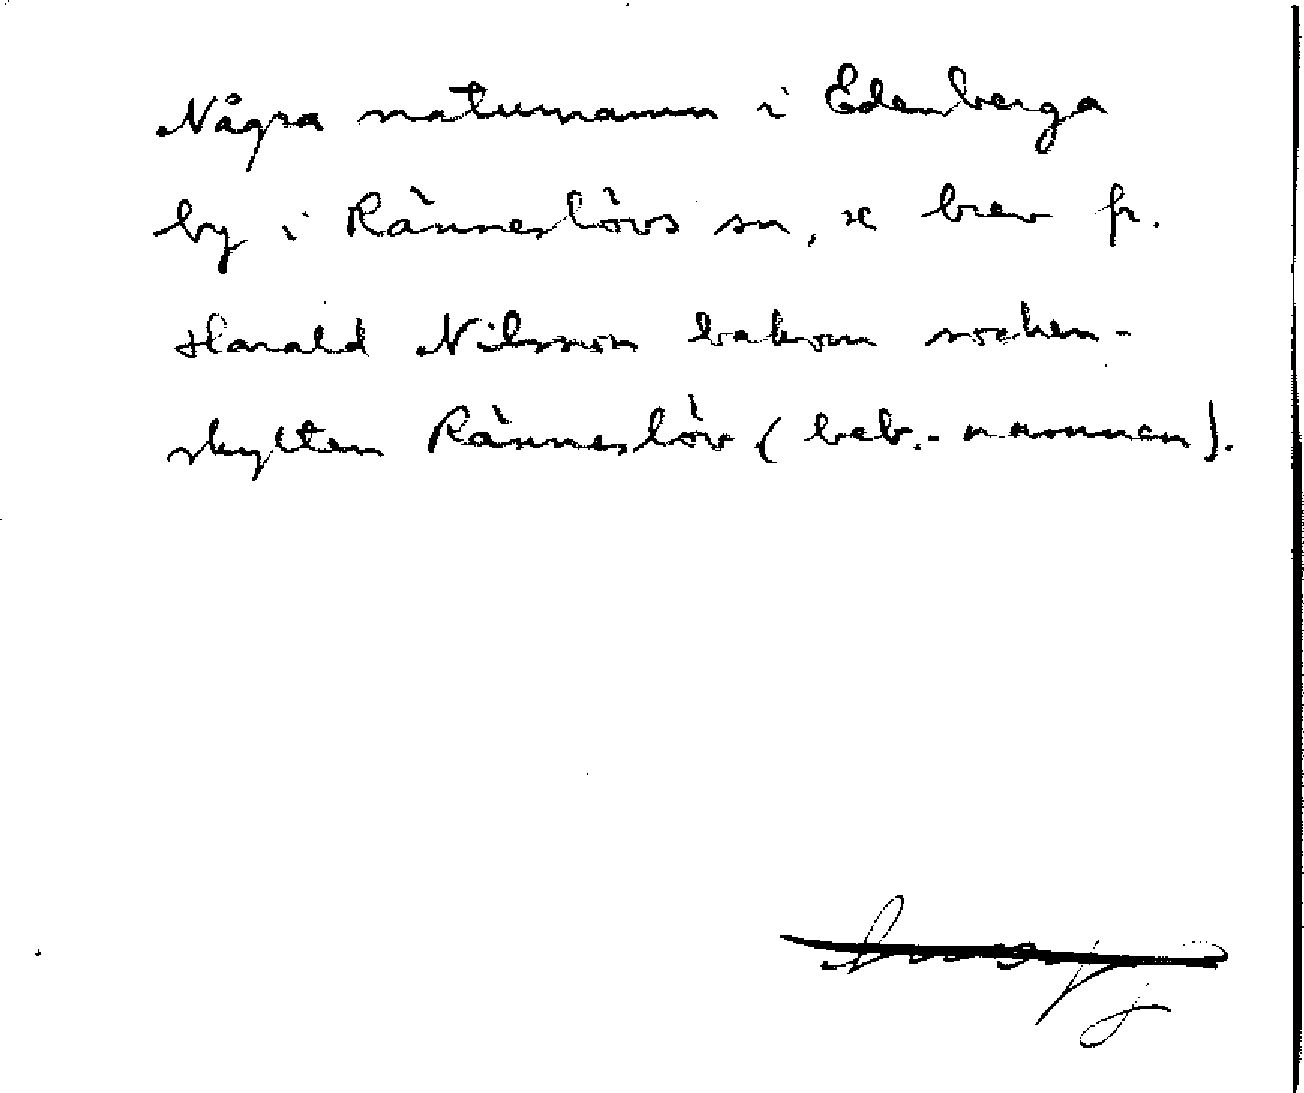 Några naturnamn i Edenberga
by i Ränneslövs sn, se brev fr.
Harald Nilsson bakom socken-
skylten Ränneslöv (beb.-namnen).